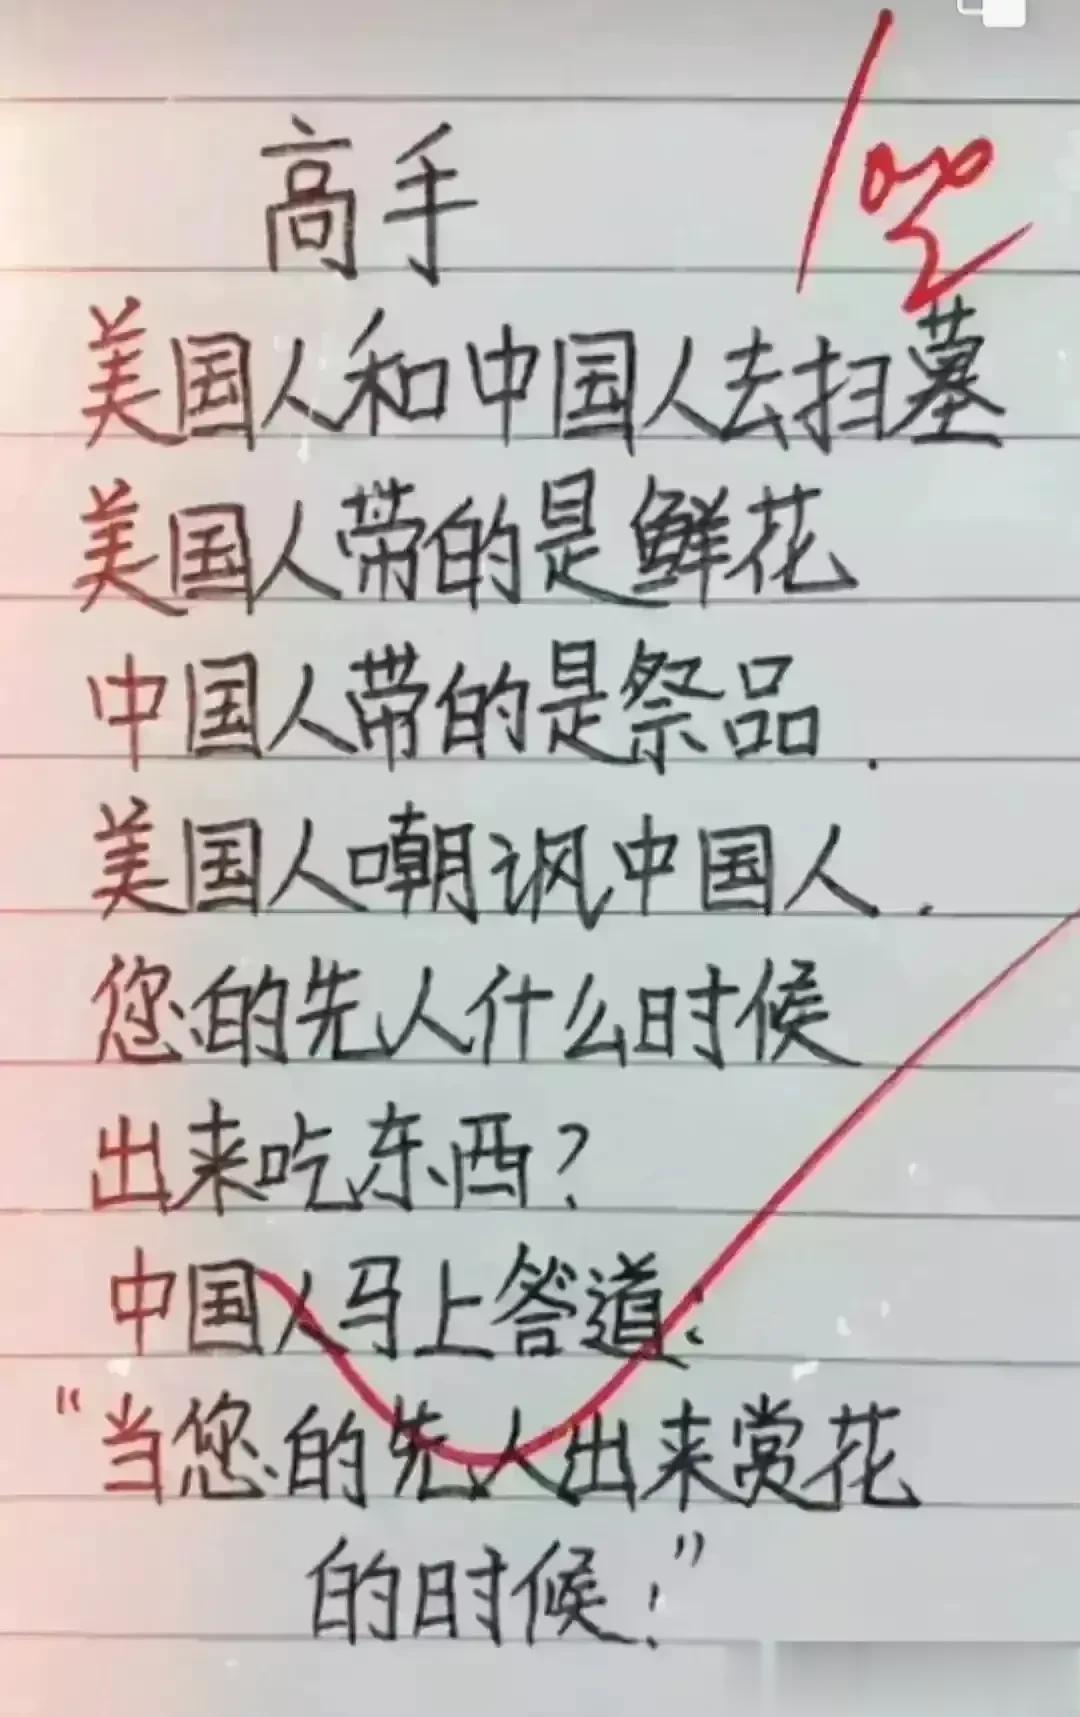 100
高手
美国人和中国人去扫墓
美国人带的是鲜花
中国人带的是祭品.
美国人嘲讽中国人.
您的先人什么时候
出来吃东西?
中国人马上答道:
"当您的先人出来赏花
的时候!"